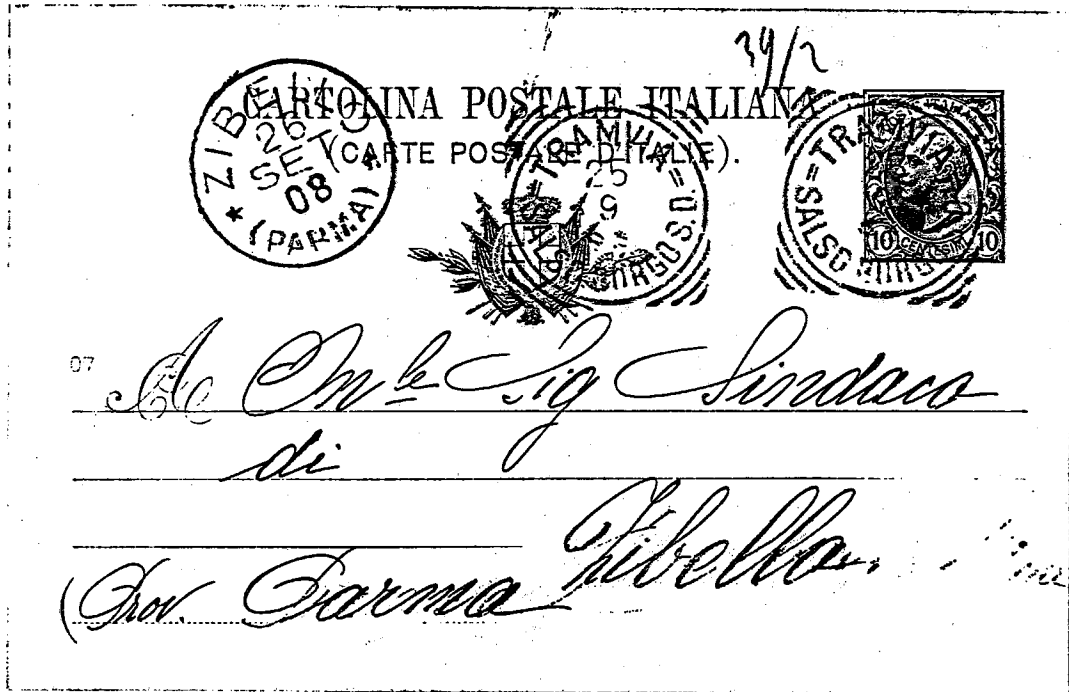 39/2
CARTOLINA POSTALE ITALIANA
(CARTE POSTALE D'ITALIE).
ZIBELLO
26
SET
08
* (PARMA) *
=TRAMVIA=
25
9
BORGO S.D.
=TRAMVIA
SALSO BORGO
10 CENTESIMI 10
07
Al On.le Sig Sindaco
di
Zibello
(Prov. Parma